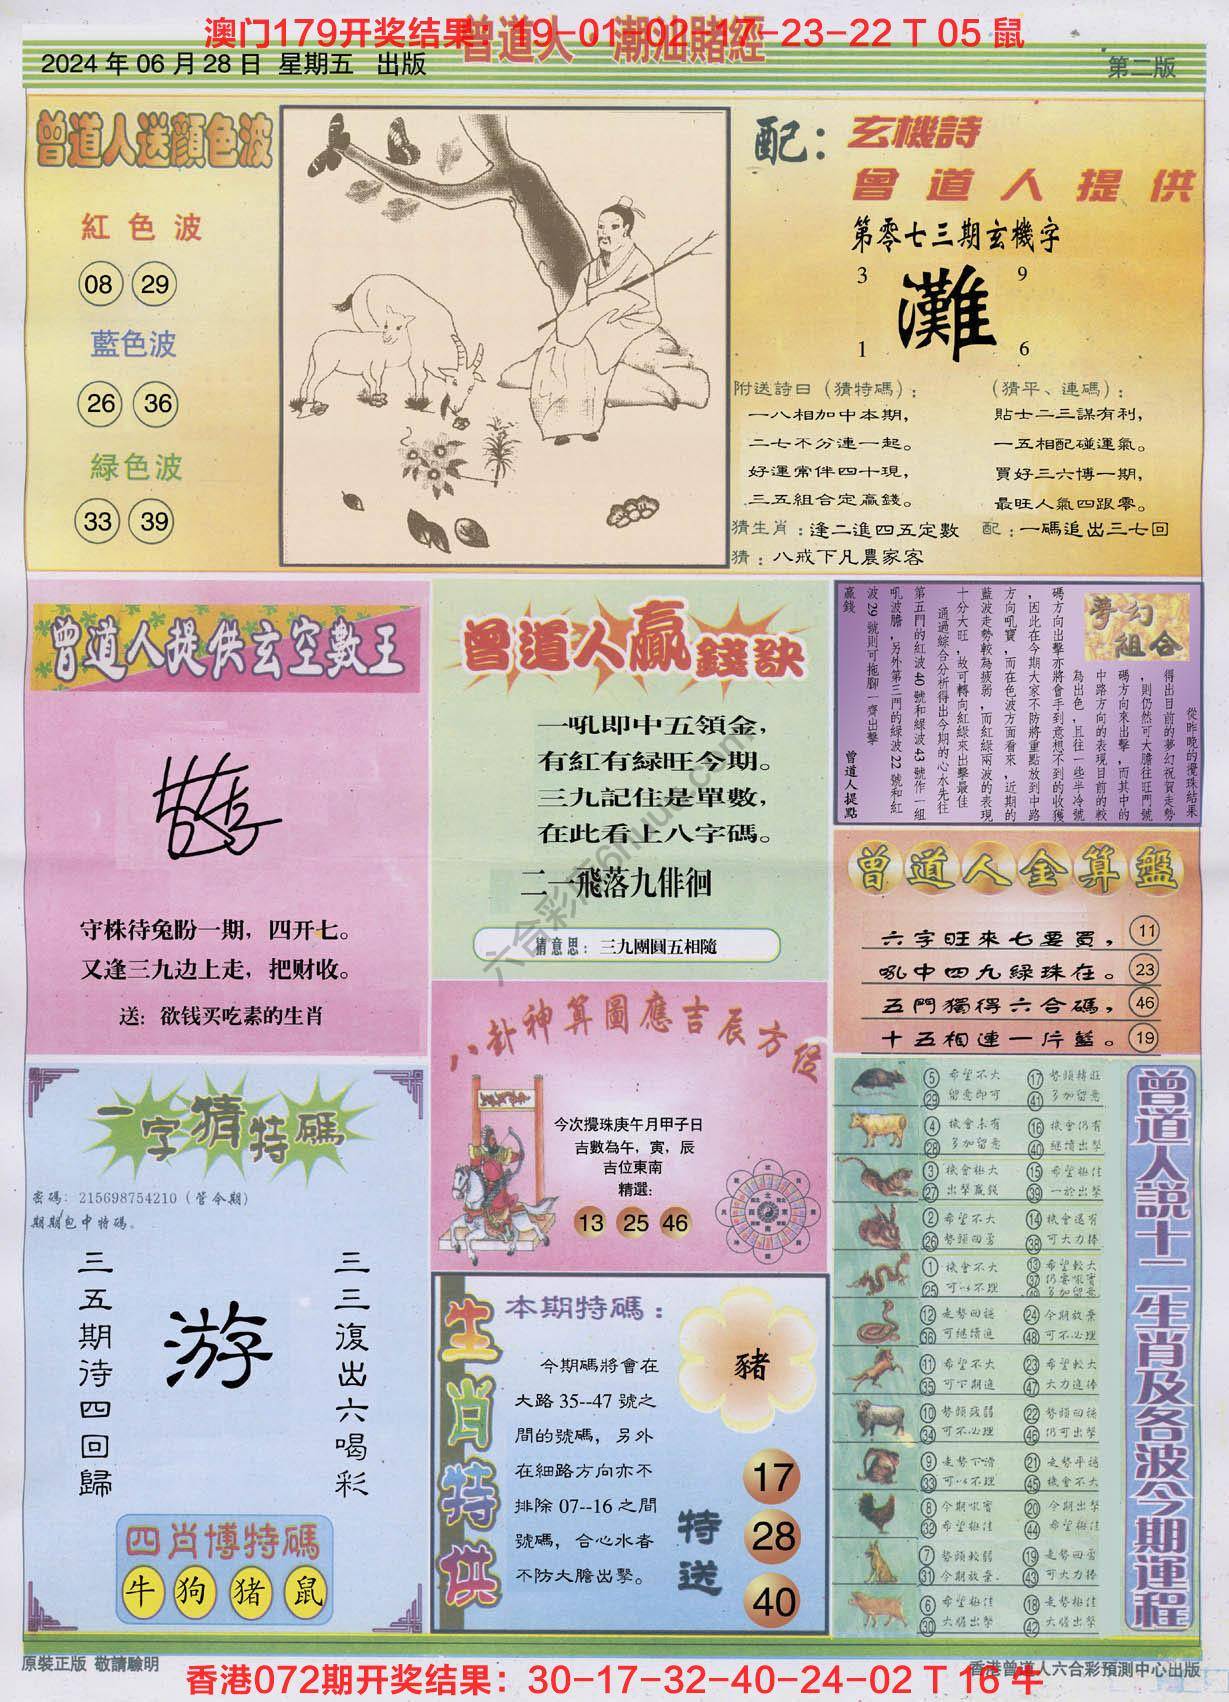 澳门179开奖结果：19-01-02-17-23-22 T 05 鼠
曾道人 潮汕賭經
2024 年 06 月 28 日 星期五 出版
第二版
曾道人送顏色波
紅色波
08 29
藍色波
26 36
緑色波
33 39
配：
玄機詩
曾道人提供
第零七三期玄機字
3 9
灘
1 6
附送詩曰（猜特碼）：
一八相加中本期，
二七不分連一起。
好運常伴四十現，
三五組合定贏錢。
（猜平、連碼）：
貼士二三謀有利，
一五相配碰運氣。
買好三六博一期，
最旺人氣四跟零。
猜生肖：逢二進四五定數
配：一碼追出三七回
猜：八戒下凡農家客
曾道人提供玄空數王
守株待兔盼一期，四开七。
又逢三九边上走，把财收。
送：欲钱买吃素的生肖
曾道人贏錢訣
一吼即中五領金，
有紅有緑旺今期。
三九記住是單數，
在此看上八字碼。
二一飛落九俳徊
猜意思：三九團圓五相隨
夢幻組合
從昨晚的攪珠結果
得出目前的夢幻祝賀走勢
，則仍然可大膽往旺門號
碼方向來出擊，而其中的
中路方向的表現目前的較
為出色，且往一些半冷號
碼方向出擊亦將會手到意想不到的收獲
，因此在今期大家不防將重點放到中路
方向吼寶，而在色波方面看來，近期的
藍波走勢較為疲弱，而紅緑兩波的表現
十分大旺，故可轉向紅緑來出擊最佳
通過綜合分析得出今期的心水先往
第五門的紅波 40 號和緑波 43 號作一組
吼波膽，另外第三門的緑波 22 號和紅
波 29 號則可拖腳一齊出擊
贏錢
曾道人提點
曾道人金算盤
六字旺來七要買， 11
吼中四九緑珠在。 23
五門獨得六合碼， 46
十五相連一片藍。 19
八卦神算圖應吉辰方位
今次攪珠庚午月甲子日
吉數為午，寅，辰
吉位東南
精選：
13 25 46
一字猜特碼
密碼：215698754210（管今期）
期期包中特碼。
三五期待四回歸
游
三三復出六喝彩
四肖博特碼
牛 狗 猪 鼠
生肖特供
本期特碼：
今期碼將會在
大路 35--47 號之
間的號碼，另外
在細路方向亦不
排除 07--16 之間
號碼，合心水者
不防大膽出擊。
豬
特送
17
28
40
曾道人說十二生肖及各波今期運程
⑤ 希望不大 ⑰ 勢頭轉旺
㉙ 留意即可 ㊶ 多加留意
④ 機會未有 ⑯ 機會仍有
㉘ 多加留意 ㊵ 繼續出擊
③ 機會極大 ⑮ 希望極佳
㉗ 出擊贏錢 ㊴ 一於出擊
② 希望不大 ⑭ 機會還有
㉖ 勢頭回勇 ㊳ 可大力捧
① 機會不大 ⑬ 希望較大
㉕ 可以不理 ㊲ 仍要吼實
多加留意
⑫ 走勢回穩 ㉔ 今期放棄
㊱ 可繼續進 ㊽ 可不必理
⑪ 希望不大 ㉓ 希望較大
㉟ 可下期進 ㊼ 大力進捧
⑩ 勢頭疲弱 ㉒ 勢頭回穩
㉞ 可不必理 ㊻ 仍可出擊
⑨ 走勢下滑 ㉑ 走勢平穩
㉝ 可以不理 ㊺ 機會不大
⑧ 今期吼實 ⑳ 今期出擊
㉜ 希望極佳 ㊹ 希望極佳
⑦ 勢頭較弱 ⑲ 走勢回勇
㉛ 今期放棄。 ㊸ 可大力捧
⑥ 希望極佳 ⑱ 走勢極佳
㉚ 大膽出擊 ㊷ 大膽出擊
原裝正版 敬請驗明
香港曾道人六合彩預測中心出版
香港072期开奖结果：30-17-32-40-24-02 T 16 牛